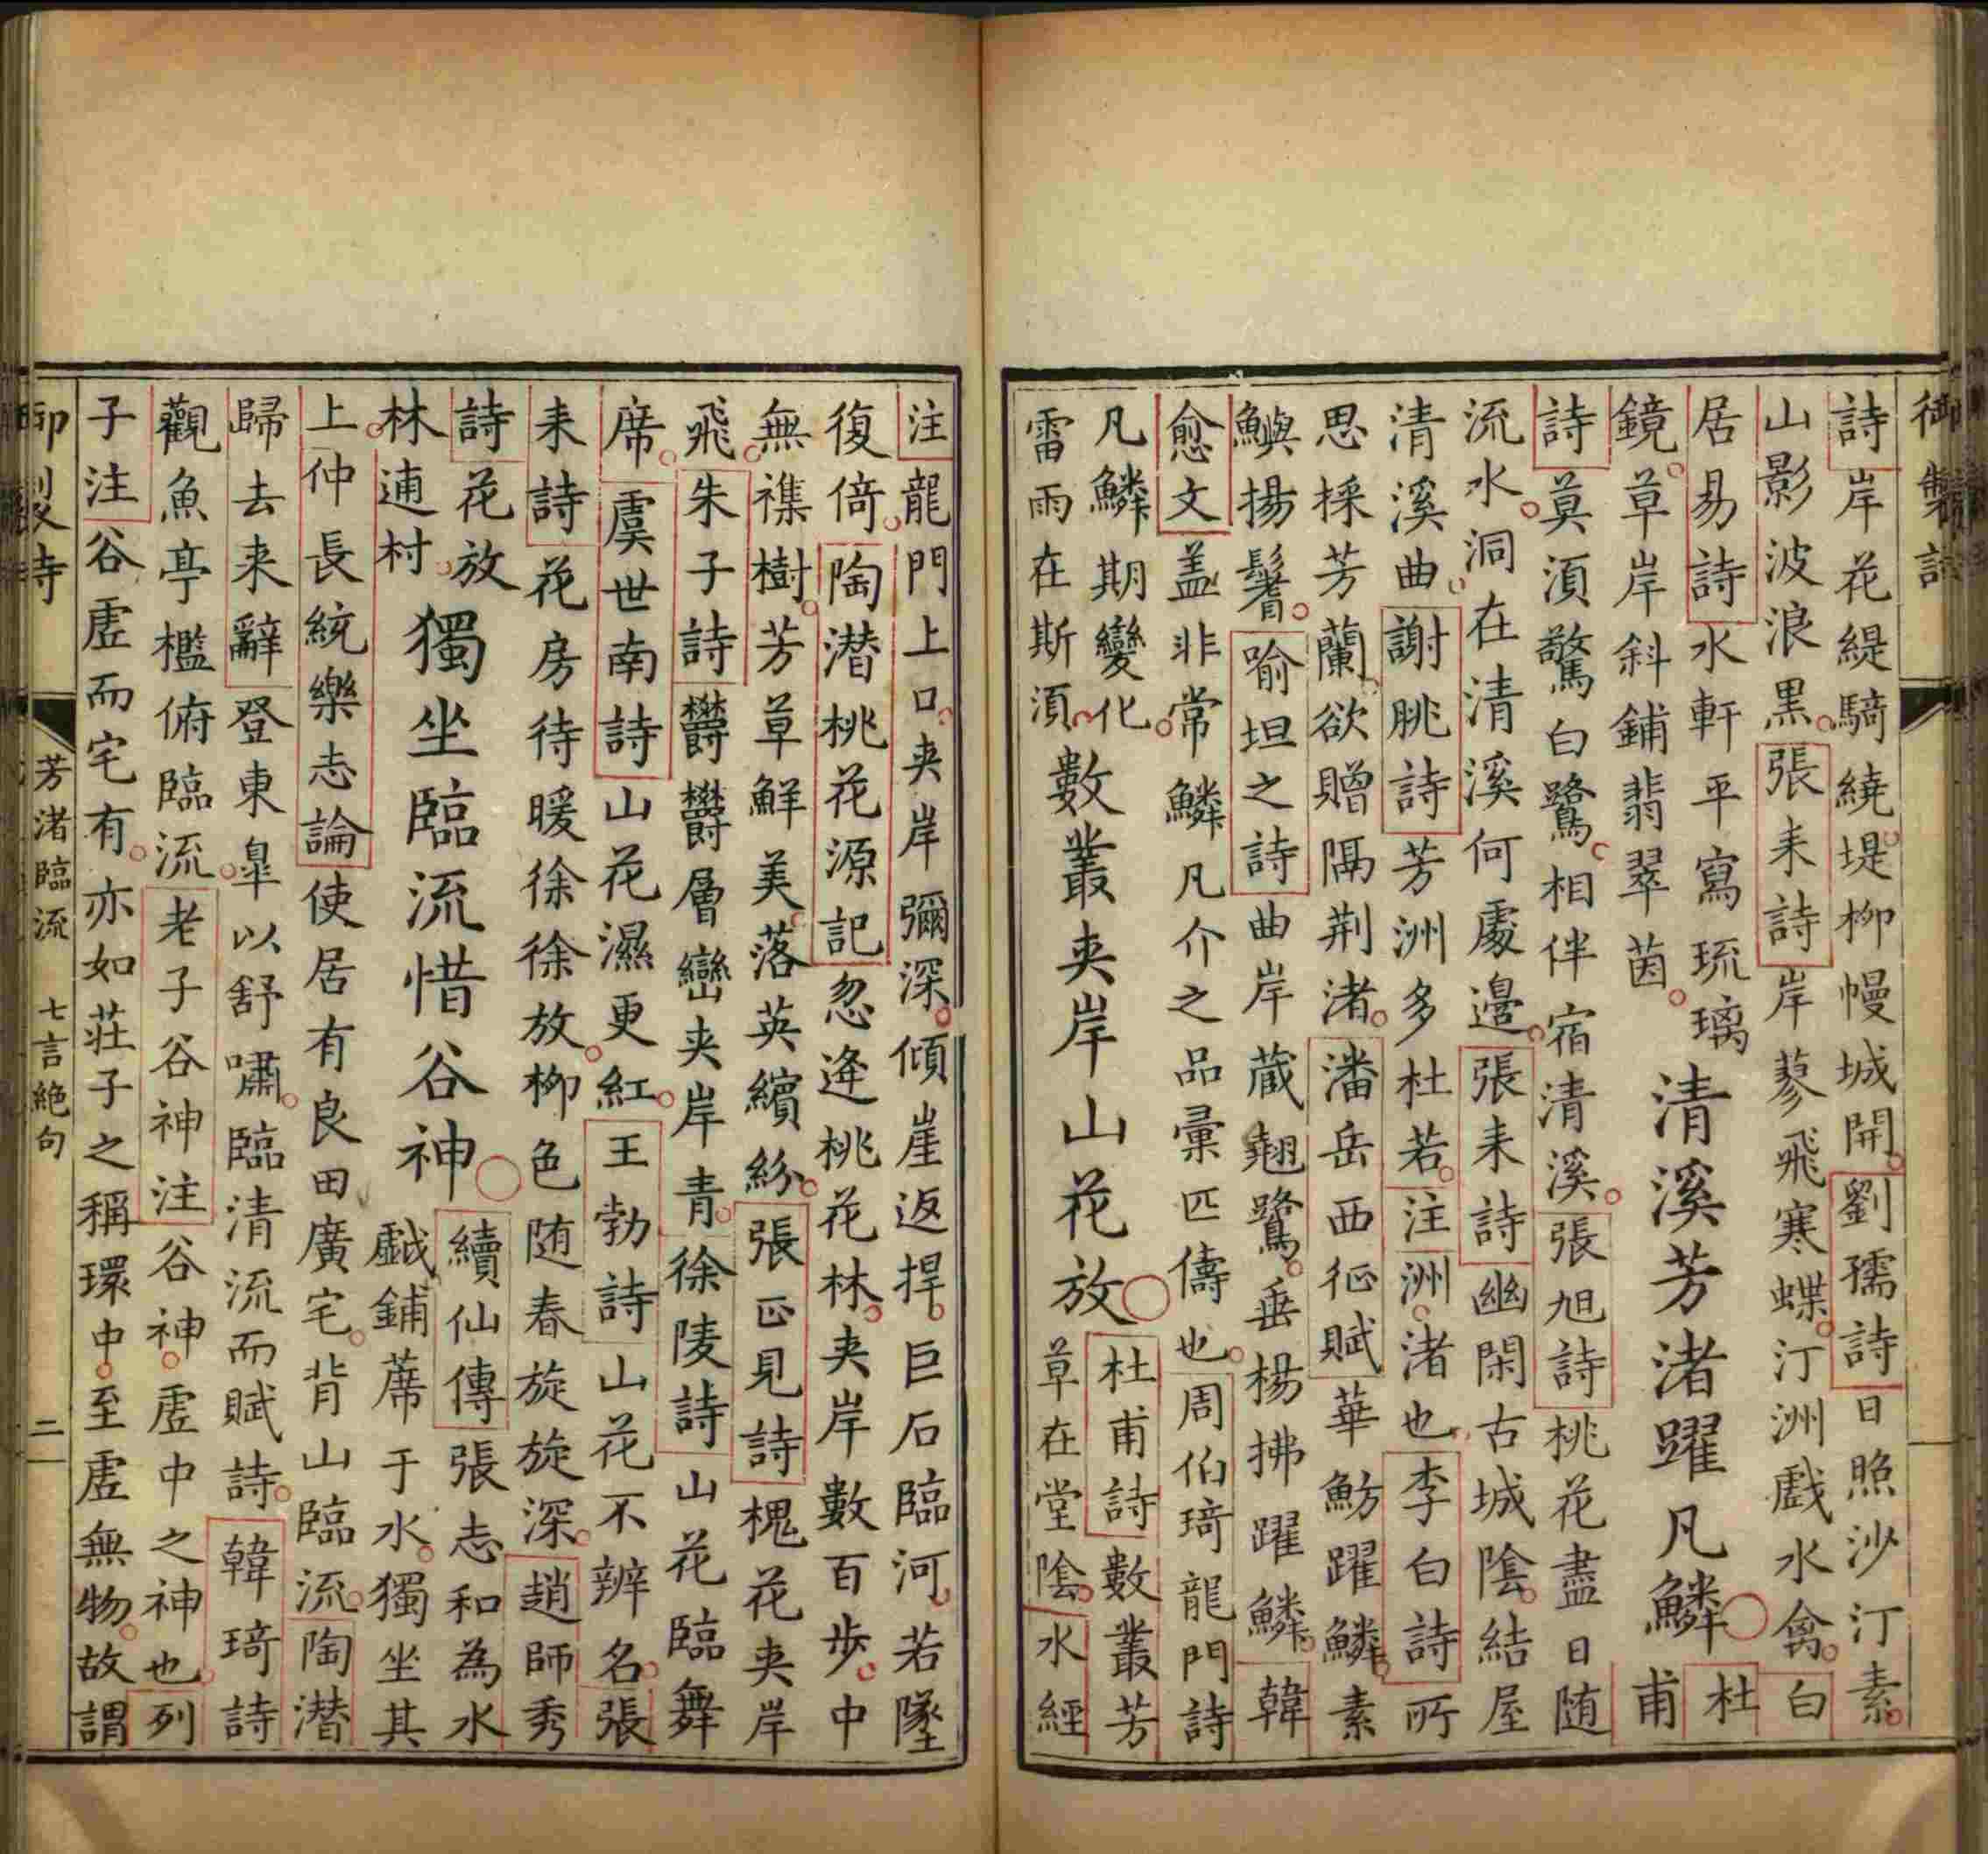 御製詩
詩岸花緹騎繞堤柳幔城開劉孺詩日照沙汀素
山影波浪黑張耒詩岸蓼飛寒蝶汀洲戲水禽白
居易詩水軒平寫琉璃
鏡草岸斜鋪翡翠茵
清溪芳渚躍凡鱗
杜
甫
詩莫湏驚白鷺相伴宿清溪張旭詩桃花盡日随
流水洞在清溪何處邉張耒詩幽閑古城隂結屋
清溪曲謝朓詩芳洲多杜若注洲渚也李白詩所
思採芳蘭欲贈隔荆渚潘岳西征賦華魴躍鱗素
鱮揚鬐喻坦之詩曲岸蔵翹鷺垂楊拂躍鱗韓
愈文盖非常鱗凡介之品彚匹儔也周伯琦龍門詩
凡鱗期變化
雷雨在斯湏
數叢夾岸山花放
杜甫詩數叢芳
草在堂隂水經
注龍門上口夾岸彌深傾崖返捍巨石臨河若墜
復倚陶潛桃花源記忽逄桃花林夾岸數百步中
無襍樹芳草鮮美落英繽紛張正見詩槐花夾岸
飛朱子詩欝欝層巒夾岸青徐陵詩山花臨舞
席虞世南詩山花濕更紅王勃詩山花不辨名張
耒詩花房待暖徐徐放柳色随春旋旋深趙師秀
詩花放
林逋村
獨坐臨流惜谷神
續仙傳張志和為水
戱鋪蓆于水獨坐其
上仲長統樂志論使居有良田廣宅背山臨流陶潛
歸去来辭登東臯以舒嘯臨清流而賦詩韓琦詩
觀魚亭檻俯臨流老子谷神注谷神虛中之神也列
子注谷虛而宅有亦如莊子之稱環中至虛無物故謂
御製詩
芳渚臨流 七言絶句
二